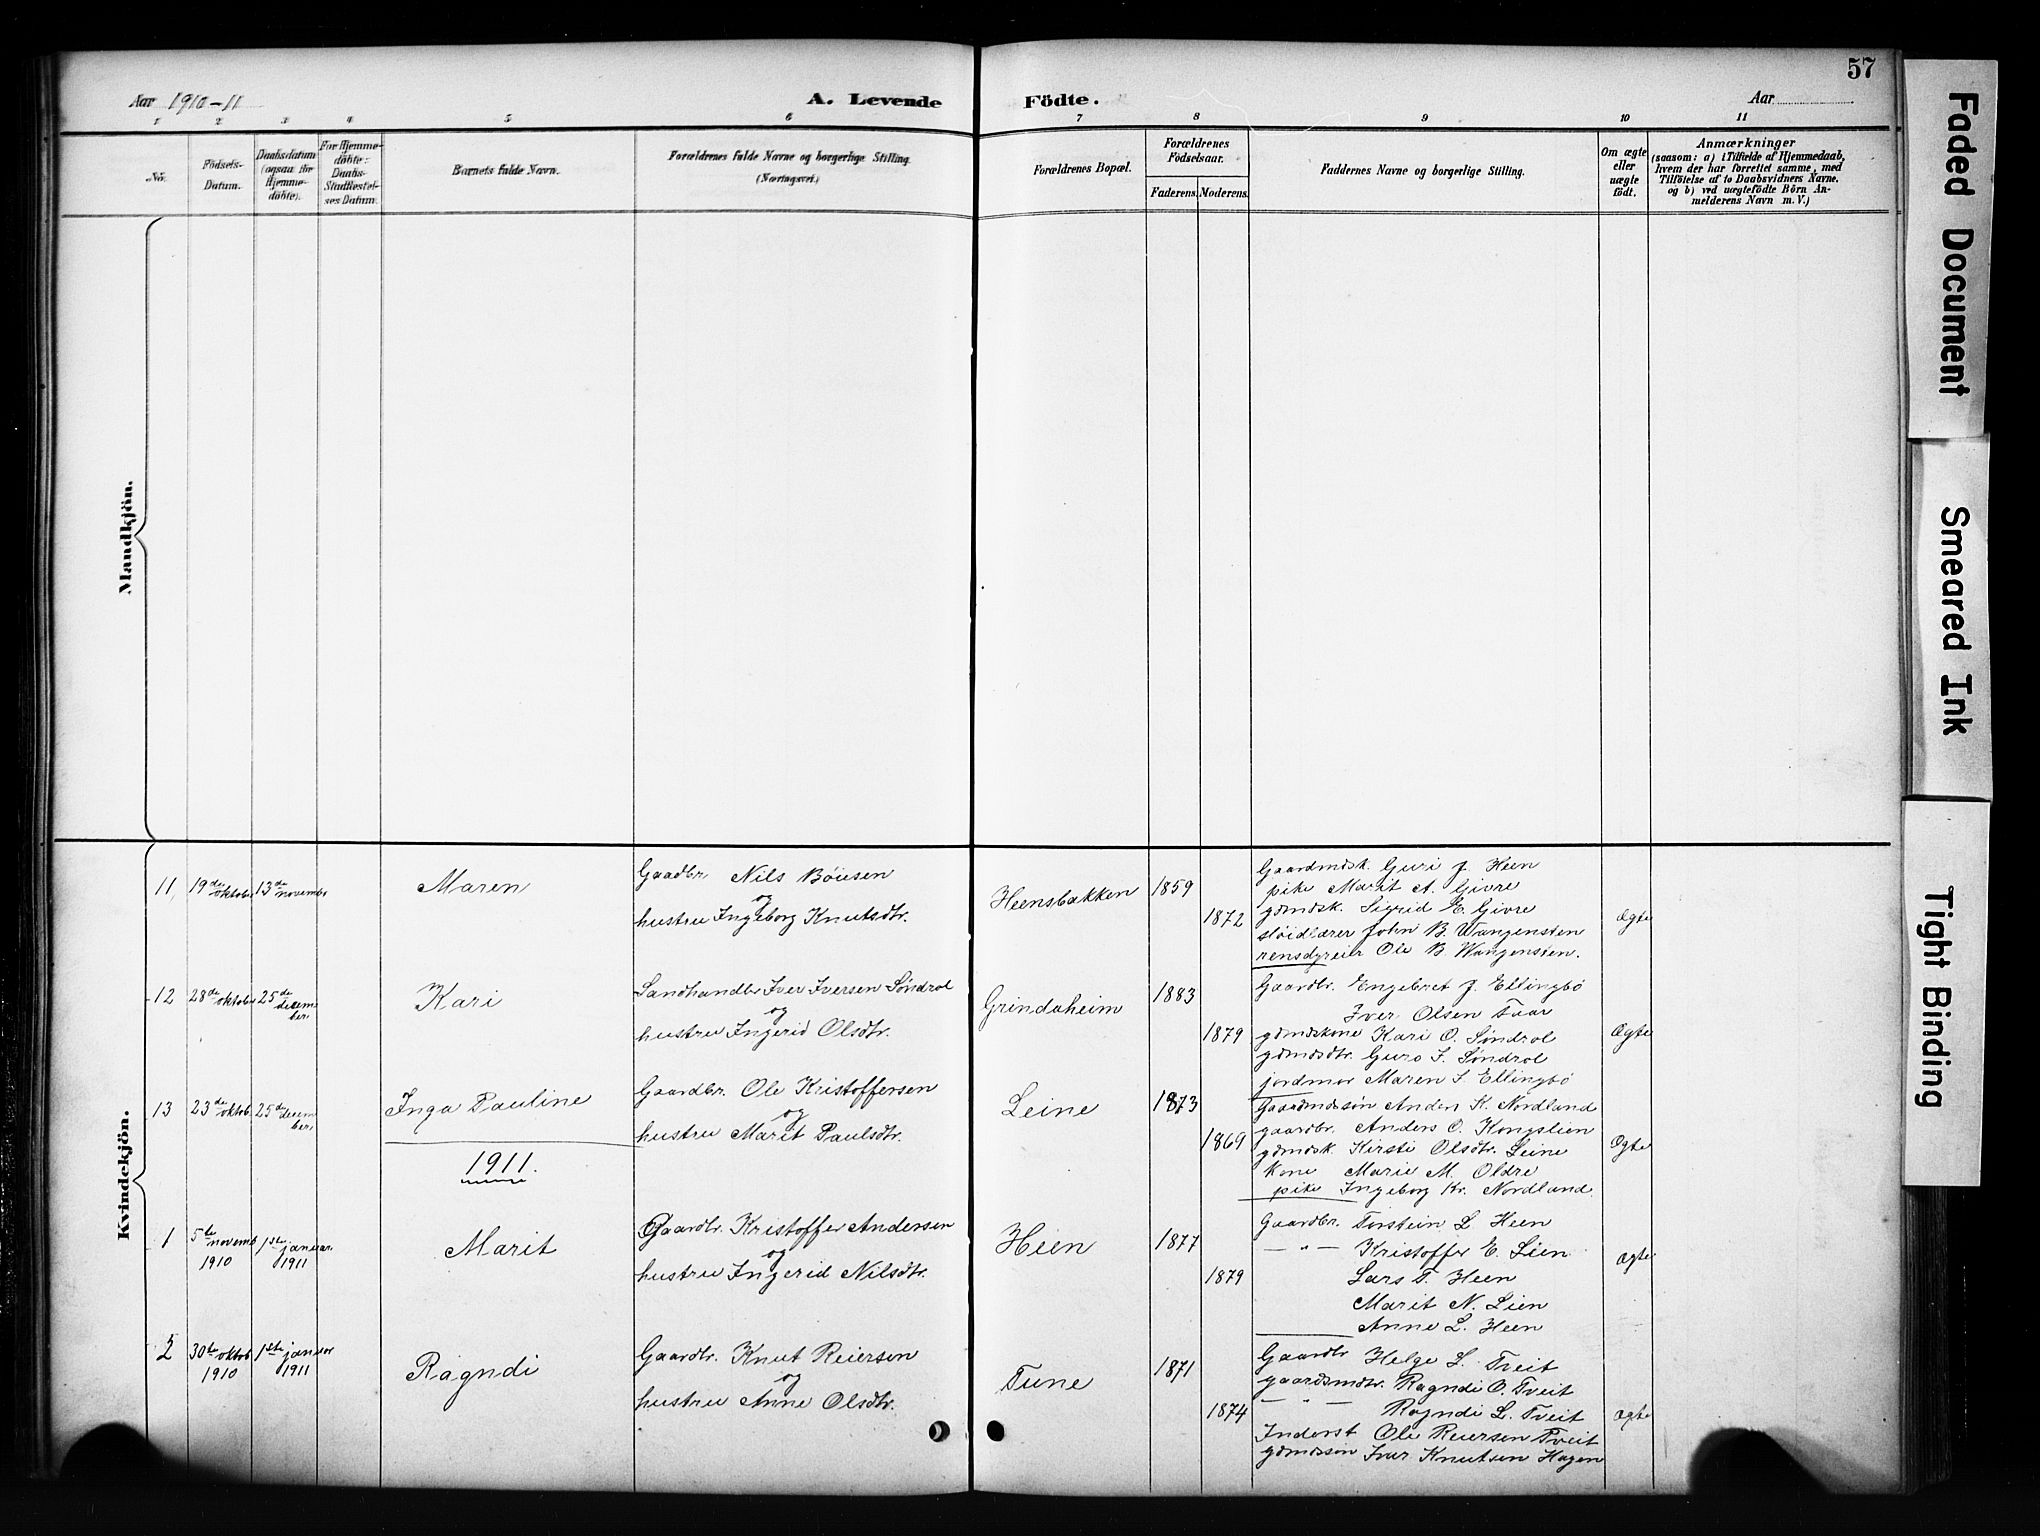 57
Aar 1910-11
A. Levende Födte.
Aar
1 2 3 4 5 6 7 8 9 10 11
No.
Födsels-
Datum.
Daabsdatum
(ogsaa for
Hjemme-
döbte).
For Hjemme-
döbte:
Daabs-
Stadfæstel-
ses Datum.
Barnets fulde Navn.
Forældrenes fulde Navne og borgerlige Stilling.
(Næringsvei.)
Forældrenes Bopæl.
Forældrenes
Födselsaar.
Faderens. Moderens.
Faddernes Navne og borgerlige Stilling.
Om ægte
eller
uægte
födt.
Anmærkninger
(saasom: a) i Tilfælde af Hjemmedaab,
hvem der har forrettet samme, med
Tilföielse af to Daabsvidners Navne.
og b) ved uægtefödte Börn An-
melderens Navn m. V.)
Mandkjön.
Kvindekjön.
11
19de oktobr
13de novembr
Maren
Gaadbr. Nils Bóusen
og
hustru Ingeborg Knutsdtr.
Heensbakken
1859
1872
Gaardmdsk. Guri J. Heen
pike Marit A. Givre
gdmdsk. Sigrid E. Givre
sløidlærer John B. Wangensten
rensdyreier Ole B. Wangensten.
Ægte
12
28de oktober
25de decem
ber.
Kari
Landhandler Iver Iversen Søndrol
og
hustru Ingerid Olsdtr.
Grindaheim
1883
1879
Gaardbr. Engebret J. Ellingbø
Iver Olsen
gdmdskone Kari O. Søndrol
gdmdsdtr. Guro I. Søndrol
jordmor Maren I. Ellingbø
Ægte
13
23de oktob
25de decem
ber.
Inga Pauline
Gaardbr. Ole Kristoffersen
og
hustru Marit Paulsdtr.
Leine
1873
1869
Gaardmdssøn Anders K. Nordland
gaardbr. Anders O. Kongslien
gdmdsk. Kirsti Olsdtr. Leine
kone Marie M. Oldre
pike Ingeborg Kr. Nordland
Ægte
1911.
1
5te novemb
1910
1ste januar
1911
Marit
Gaardbr. Kristoffer Andersen
og
hustru Ingerid Nilsdtr.
Heen
1877
1879
Gaardbr. Torstein L. Heen
— " — Kristoffer E. Lien
Lars T. Heen
Marit N. Lien
Anne L. Heen
Ægte
2
30te oktob
1910
1ste januar
1911
Ragndi
Gaardbr. Knut Reiersen
og
hustru Anne Olsdtr.
Tune
1871
1874
Gaardbr Helge L. Tveit
gaardmdtr. Ragndi O. Tveit
— " — Ragndi L. Tveit
Inderst Ole Reiersen Tveit
gdmdssøn Ivar Knutsen Hagen
Ægte
Faded Document
Smeared Ink
Tight Binding